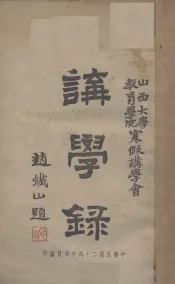 山西大學
教育學院寒假講學會
講學錄
趙鐵山題
中華民國二十五年四月編印